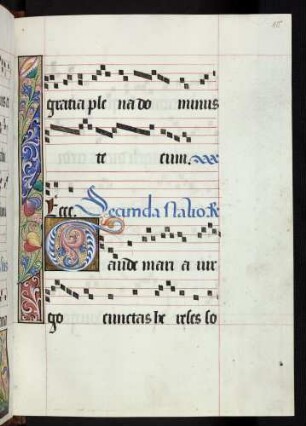 gratia ple na do minus
te cum.
Secunda
Gaude mari a vir
go cunctas he reses so